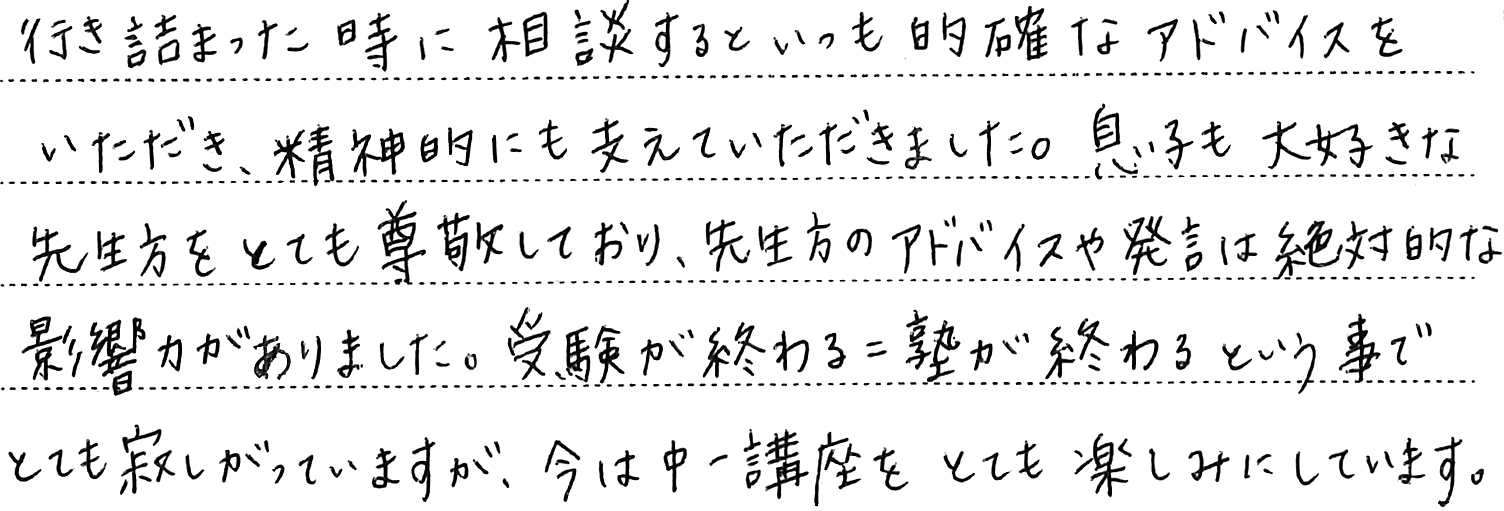 行き詰まった時に相談するといつも的確なアドバイスを
いただき、精神的にも支えていただきました。息子も大好きな
先生方をとても尊敬しており、先生方のアドバイスや発言は絶対的な
影響力がありました。受験が終わる=塾が終わるという事で
とても寂しがっていますが、今は中一講座をとても楽しみにしています。